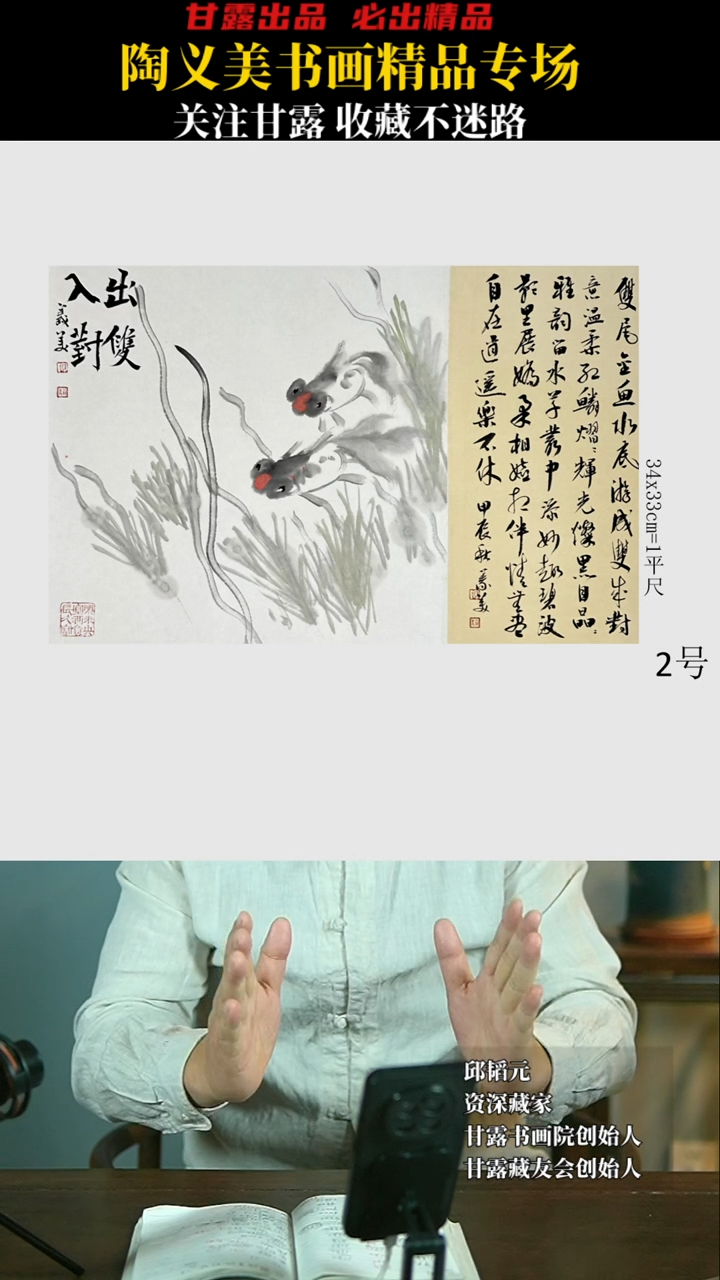 甘露出品 必出精品
陶义美书画精品专场
关注甘露 收藏不迷路
出雙
入對
義美
雙尾金魚水底游成雙成對
意溫柔紅鱗熠熠輝光燦黑目晶晶
雅韵留水草叢中添妙趣碧波
影里展嬌柔相嬉相伴情無盡
自在逍遥樂不休 甲辰秋 義美
34x33cm=1平尺
2号
邱韬元
资深藏家
甘露书画院创始人
甘露藏友会创始人